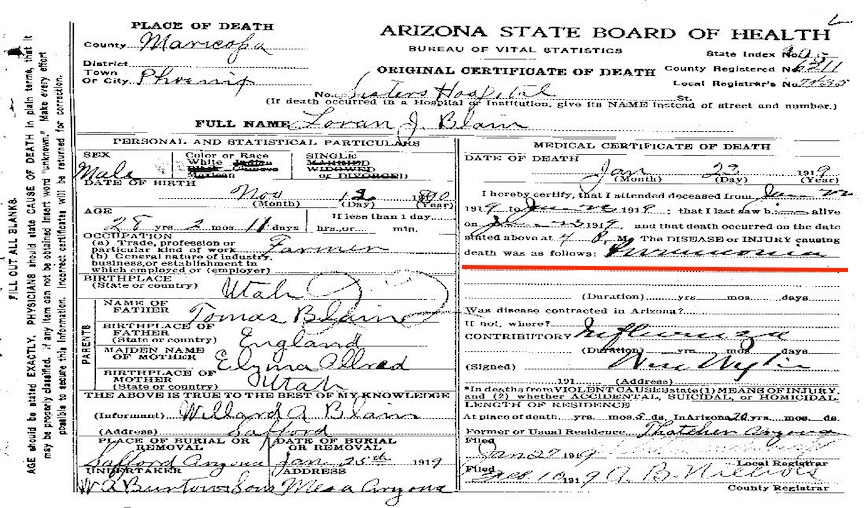 PLACE OF DEATH
County Maricopa
District
Town
Or City Phoenix
ARIZONA STATE BOARD OF HEALTH
BUREAU OF VITAL STATISTICS
State Index No.
ORIGINAL CERTIFICATE OF DEATH
County Registered No.
Local Registrar's No.
No. Sisters Hospital St.
(If death occurred in a Hospital or Institution, give its NAME instead of street and number.)
FULL NAME Loran J. Blain
PERSONAL AND STATISTICAL PARTICULARS
SEX
Male
Color or Race
White
SINGLE
MARRIED
WIDOWED
or DIVORCED
DATE OF BIRTH
Nov 12 1890
(Month) (Day) (Year)
AGE
28 yrs. 2 mos. 11 days
If less than 1 day
hrs. or min.
OCCUPATION
(a) Trade, profession or
particular kind of work Farmer
(b) General nature of industry,
business, or establishment in
which employed or (employer)
BIRTHPLACE
(State or country) Utah
PARENTS
NAME OF
FATHER Tomas Blain
BIRTHPLACE OF
FATHER
(State or country) England
MAIDEN NAME
OF MOTHER Elzina Allred
BIRTHPLACE OF
MOTHER
(State or country) Utah
THE ABOVE IS TRUE TO THE BEST OF MY KNOWLEDGE
(Informant) Willard A Blain
(Address) Safford
PLACE OF BURIAL OR
REMOVAL
Safford Arizona
DATE OF BURIAL
OR REMOVAL
Jan 25th 1919
UNDERTAKER
ADDRESS
Mesa Arizona
MEDICAL CERTIFICATE OF DEATH
DATE OF DEATH
Jan 23 1919
(Month) (Day) (Year)
I hereby certify, that I attended deceased from Jan
1919 to 1919; that I last saw h alive
on 1919 and that death occurred on the date
stated above at M. The DISEASE or INJURY causing
death was as follows: Pneumonia
(Duration) yrs. mos. days.
Was disease contracted in Arizona?
If not, where?
CONTRIBUTORY Influenza
(Duration) yrs. mo. days.
(Signed) Wm Wylie
191 (Address)
*In deaths from VIOLENT CAUSES state (1) MEANS OF INJURY,
and (2) whether ACCIDENTAL, SUICIDAL, or HOMICIDAL.
LENGTH OF RESIDENCE
At place of death yrs. mos. 5 ds. In Arizona 20 yrs. mos. ds.
Former or Usual Residence Thatcher Arizona
Filed
Jan 27 1919
Local Registrar
Filed 1919
County Registrar
FILL OUT ALL BLANKS.
AGE should be stated EXACTLY. PHYSICIANS should state CAUSE OF DEATH in plain terms, that it
may be properly classified. If any item can not be obtained insert word "unknown." Make every effort
possible to secure this information. Incorrect certificates will be returned for correction.